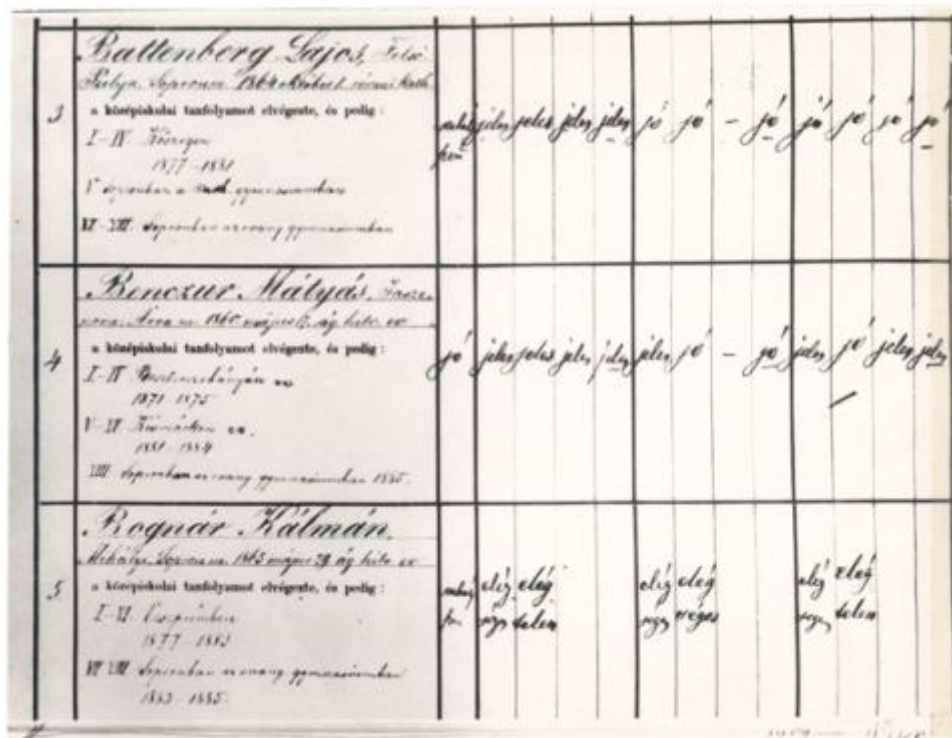 3
Battenberg Lajos, Felső
Pulya, Sopron m. 1864 október 1. római kath.
a középiskolai tanfolyamot elvégezte, és pedig:
I-IV Kőszegen
1877-1881
V Sopronban a kath. gymnasiumban
VI-VIII. Sopronban az evang gymnasiumban
jeles jeles jeles jeles jó jó - jó jó jó jó jó
4
Benczur Mátyás,
Árva m. 1860 május ág. hitv. ev
a középiskolai tanfolyamot elvégezte, és pedig:
I-IV ev
1871-1875
V-VII Késmárkon ev.
1881-1884
VIII. Sopronban az evang gymnasiumban 1885.
jó jeles jeles jeles jeles jeles jó - jó jeles jó jeles jeles
5
Bognár Kálmán,
Mihályi, Sopron m. 1863 május 29 ág. hitv. ev
a középiskolai tanfolyamot elvégezte, és pedig:
I-VI.
1877-1883
VII VIII. Sopronban az evang gymnasiumban
1883-1885.
elég elég elég elég elég elég
telen séges telen